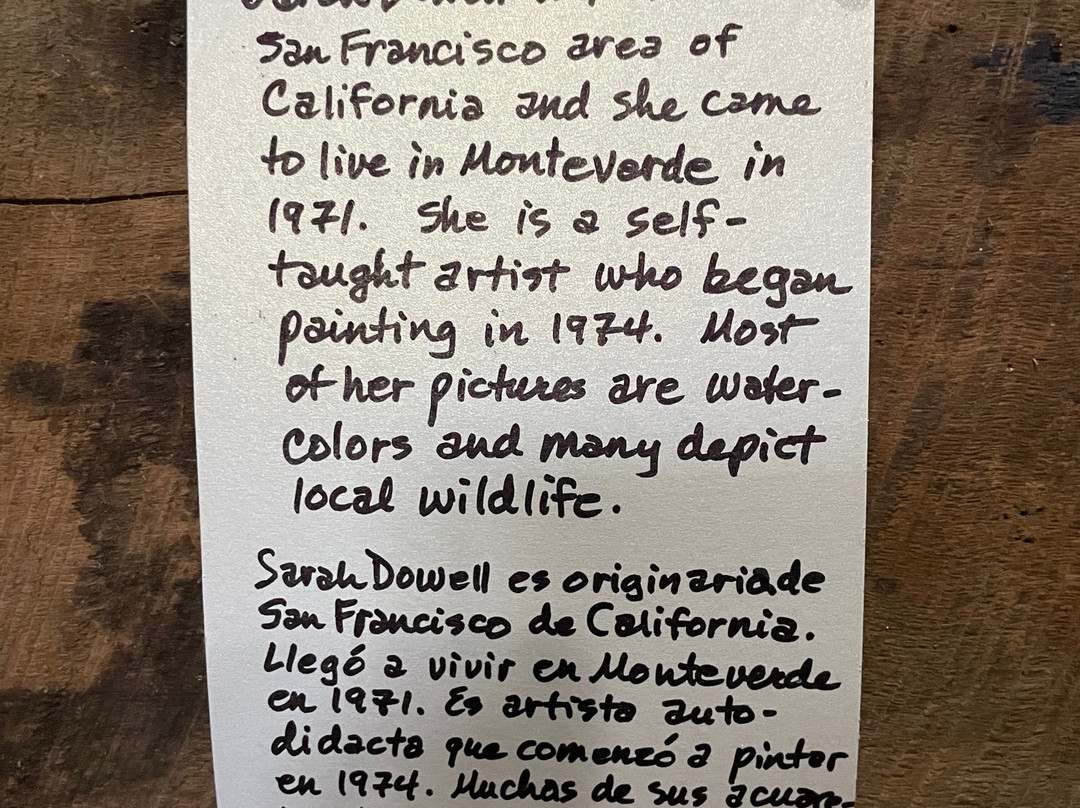 San Francisco area of
California and she came
to live in Monteverde in
1971. She is a self-
taught artist who began
painting in 1974. Most
of her pictures are water-
colors and many depict
local wildlife.
Sarah Dowell es originaria de
San Francisco de California.
Llegó a vivir en Monteverde
en 1971. Es artista auto-
didacta que comenzó a pintar
en 1974. Muchas de sus acuare-